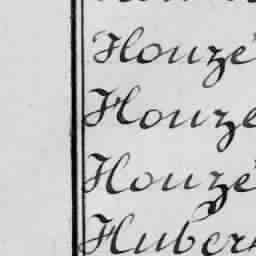 Houzé
Houzé
Houzé
Huber